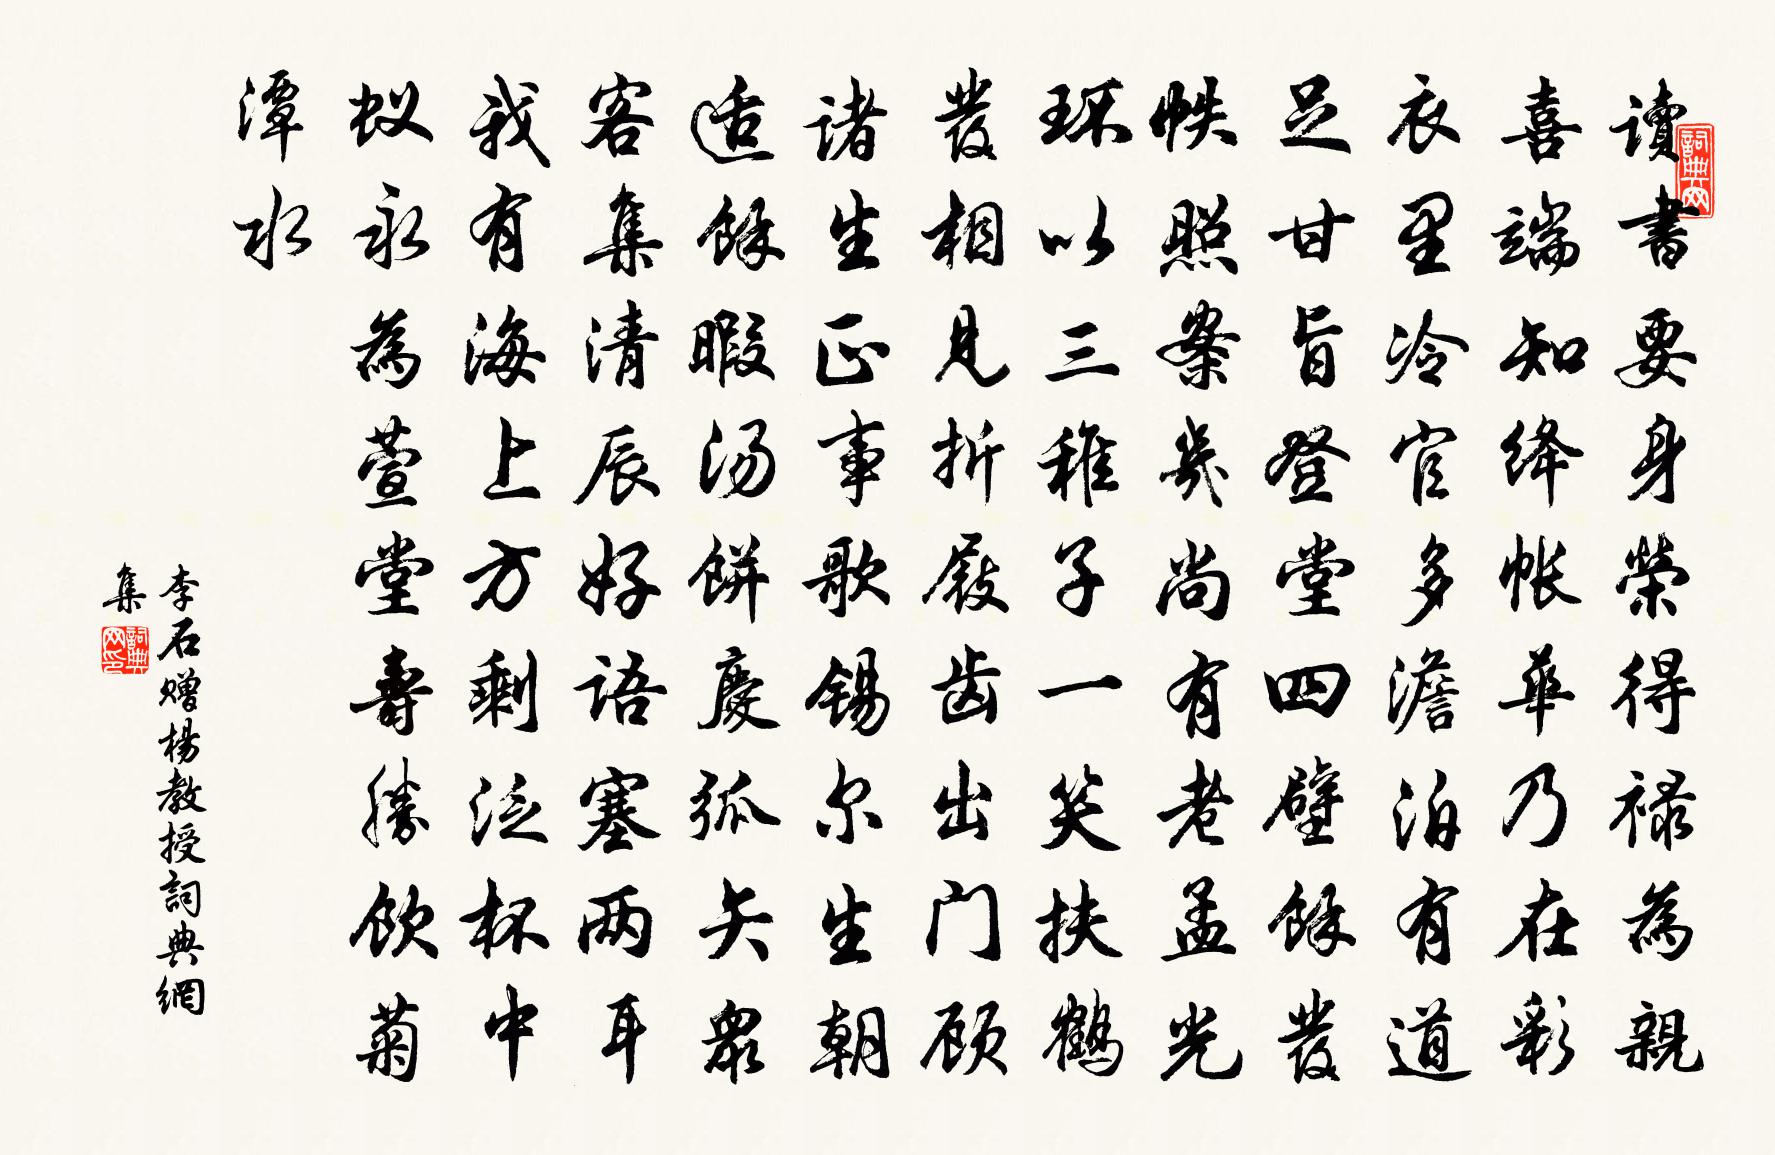 讀書要身榮得祿為親
喜端知絳帳華乃在彩
衣里冷官多澹泊有道
足甘旨登堂四壁餘發
帙照案幾尚有老孟光
環以三稚子一笑扶鶴
發相見折屐齒出门顾
諸生正事歌锡尔生朝
适餘暇汤餅慶弧矢眾
客集清辰好語塞两耳
我有海上方剩泛杯中
蚁永為萱堂壽勝飲菊
潭水
李石赠楊教授詞典網
集
詞典网
詞典网印